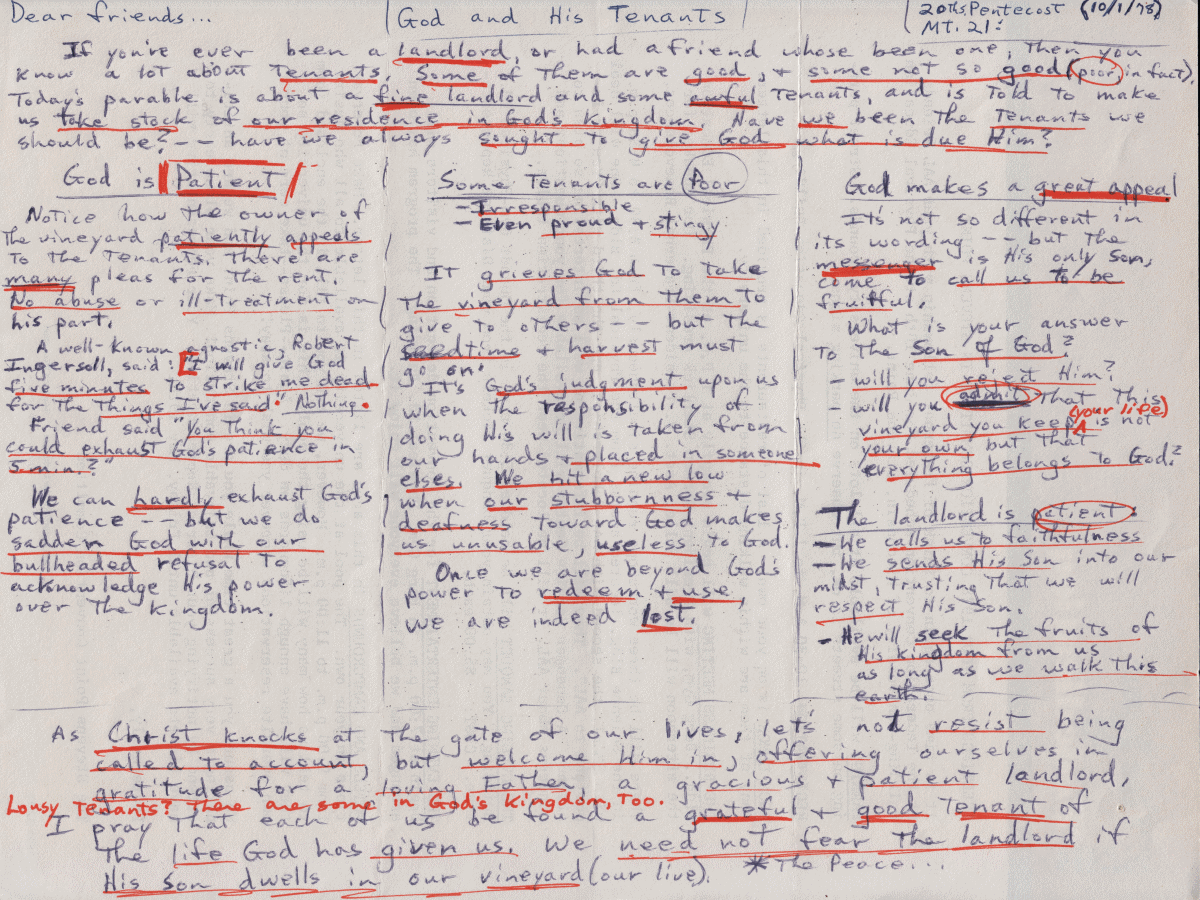 Dear friends...
God and His Tenants
20th Pentecost (10/1/78)
MT. 21:
If you're ever been a landlord, or had a friend whose been one, then you
know a lot about Tenants. Some of them are good, + some not so good (poor, in fact).
Today's parable is about a fine landlord and some awful Tenants, and is told to make
us take stock of our residence in God's Kingdom. Have we been the Tenants we
should be? -- have we always sought to give God what is due Him?
God is Patient
Notice how the owner of
the vineyard patiently appeals
to the Tenants. There are
many pleas for the rent.
No abuse or ill-treatment on
his part.
A well-known agnostic, Robert
Ingersoll, said: "I will give God
five minutes to strike me dead
for the things I've said." Nothing.
Friend said "You think you
could exhaust God's patience in
5 min.?"
We can hardly exhaust God's
patience -- but we do
sadden God with our
bullheaded refusal to
acknowledge His power
over the kingdom.
Some Tenants are Poor
- Irresponsible
- Even proud + stingy
It grieves God to take
the vineyard from them to
give to others -- but the
seedtime + harvest must
go on.
It's God's judgment upon us
when the responsibility of
doing His will is taken from
our hands + placed in someone
elses. We hit a new low
when our stubbornness +
deafness toward God makes
us unusable, useless to God.
Once we are beyond God's
power to redeem + use,
we are indeed lost.
God makes a great appeal
It's not so different in
its wording -- but the
messenger is His only Son,
come to call us to be
fruitful.
What is your answer
to the Son of God?
- will you reject Him?
- will you admit that this
vineyard you keep (your life) is not
your own, but that
everything belongs to God?
The landlord is patient.
- He calls us to faithfulness
- He sends His Son into our
midst, trusting that we will
respect His Son.
- He will seek the fruits of
His kingdom from us
as long as we walk this
earth.
As Christ knocks at the gate of our lives, let's not resist being
called to account, but welcome Him in, offering ourselves in
gratitude for a loving Father, a gracious + patient landlord.
Lousy Tenants? There are some in God's Kingdom, Too.
I pray that each of us be found a grateful + good Tenant of
the life God has given us. We need not fear the landlord if
His son dwells in our vineyard (our live). * The Peace...